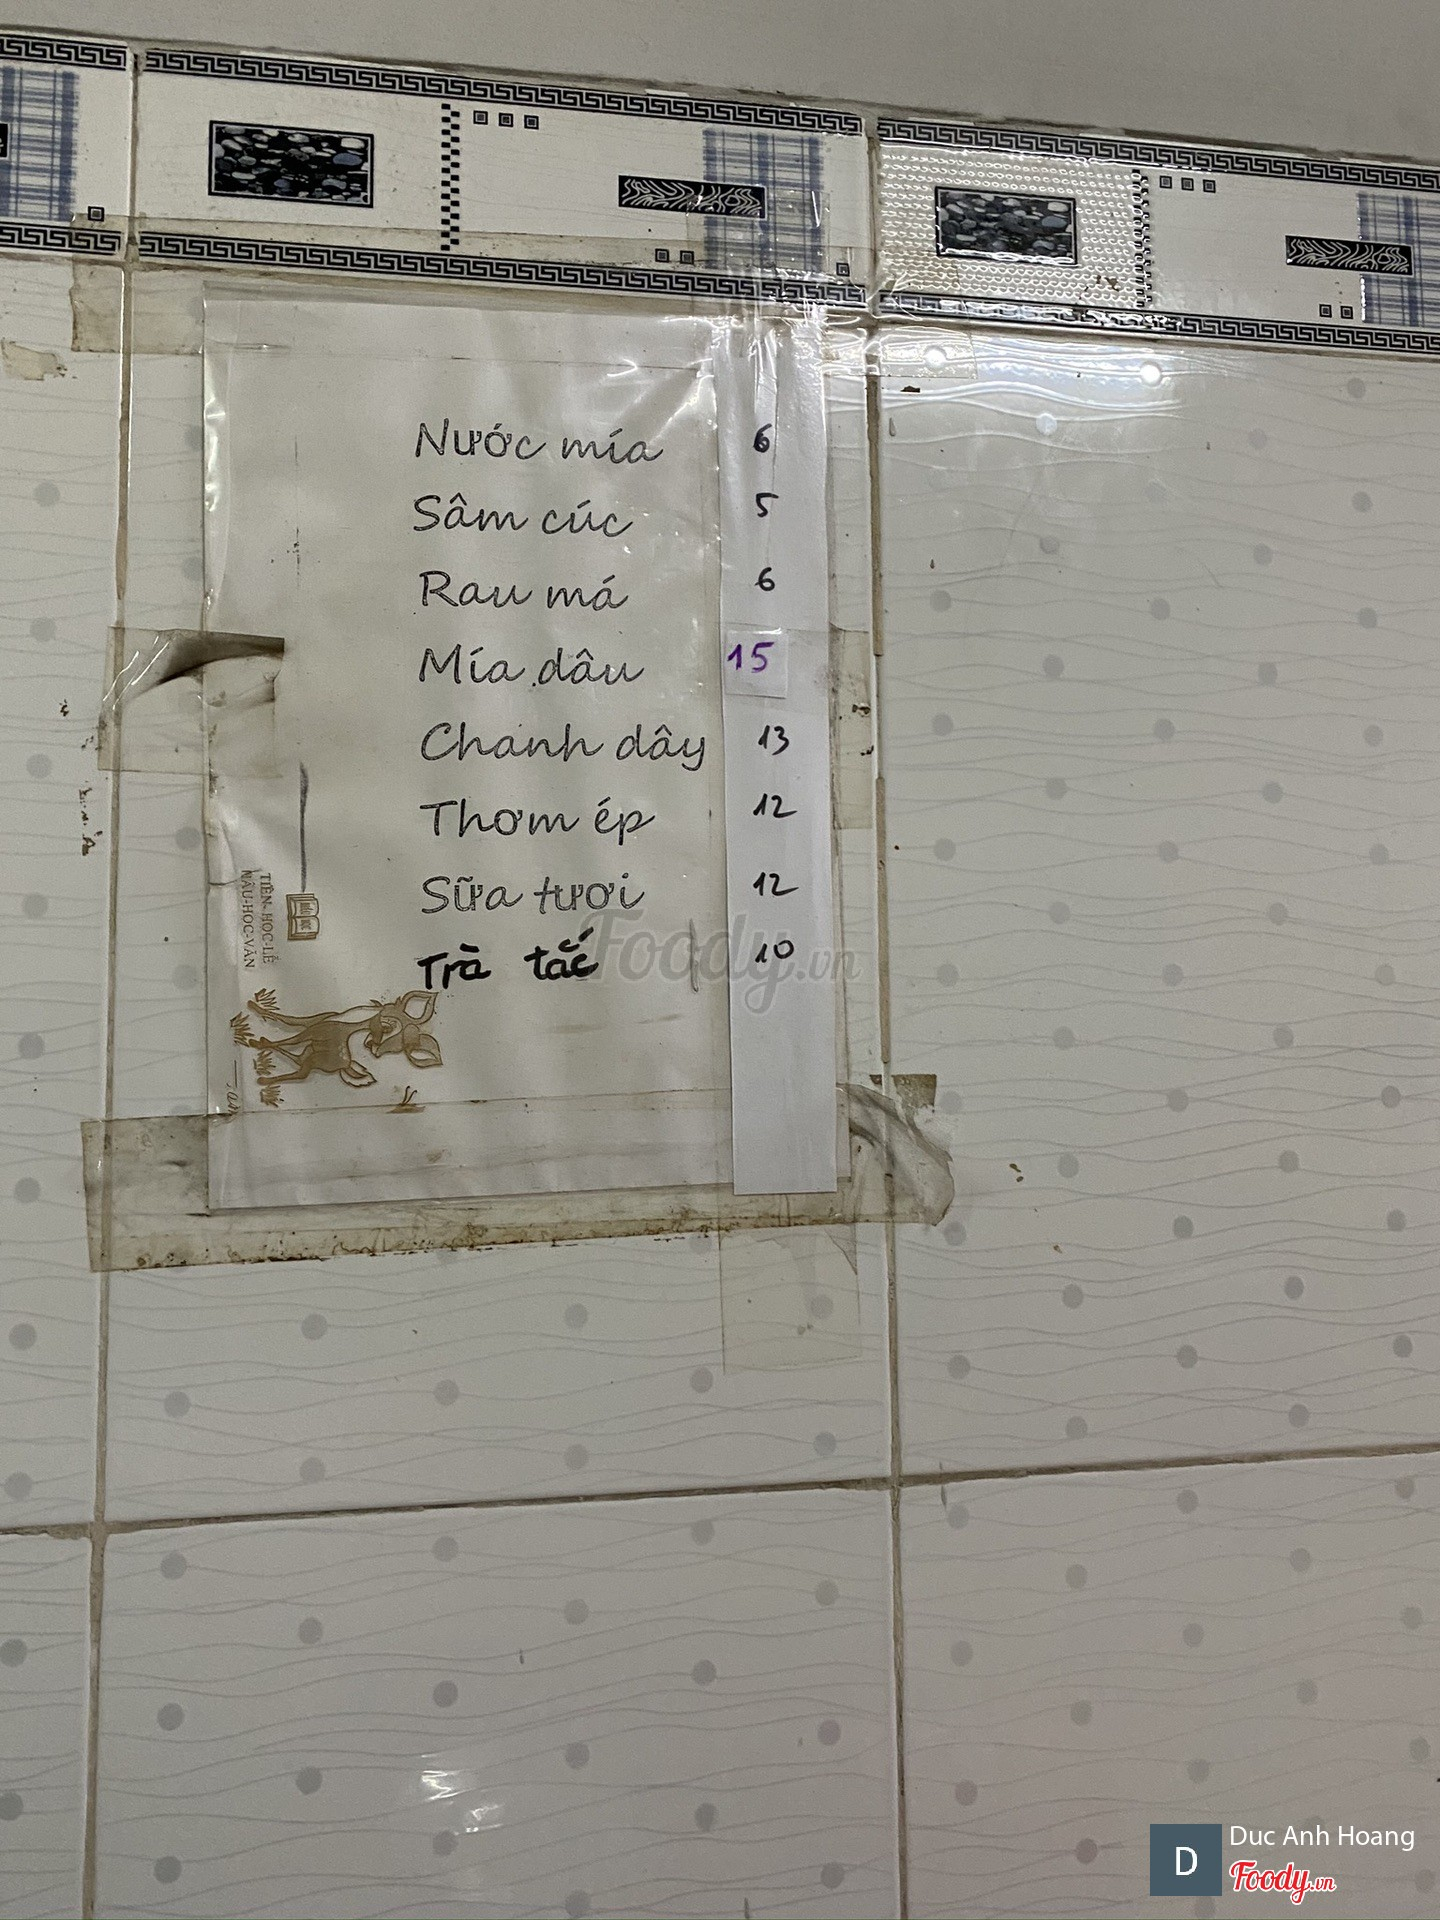 Nước mía 6
Sâm cúc 5
Rau má 6
Mía dâu 15
Chanh dây 13
Thơm ép 12
Sữa tươi 12
Trà tắc 10
TIÊN-HỌC-LỄ
HẬU-HỌC-VĂN
Foody.vn
D
Duc Anh Hoang
Foody.vn